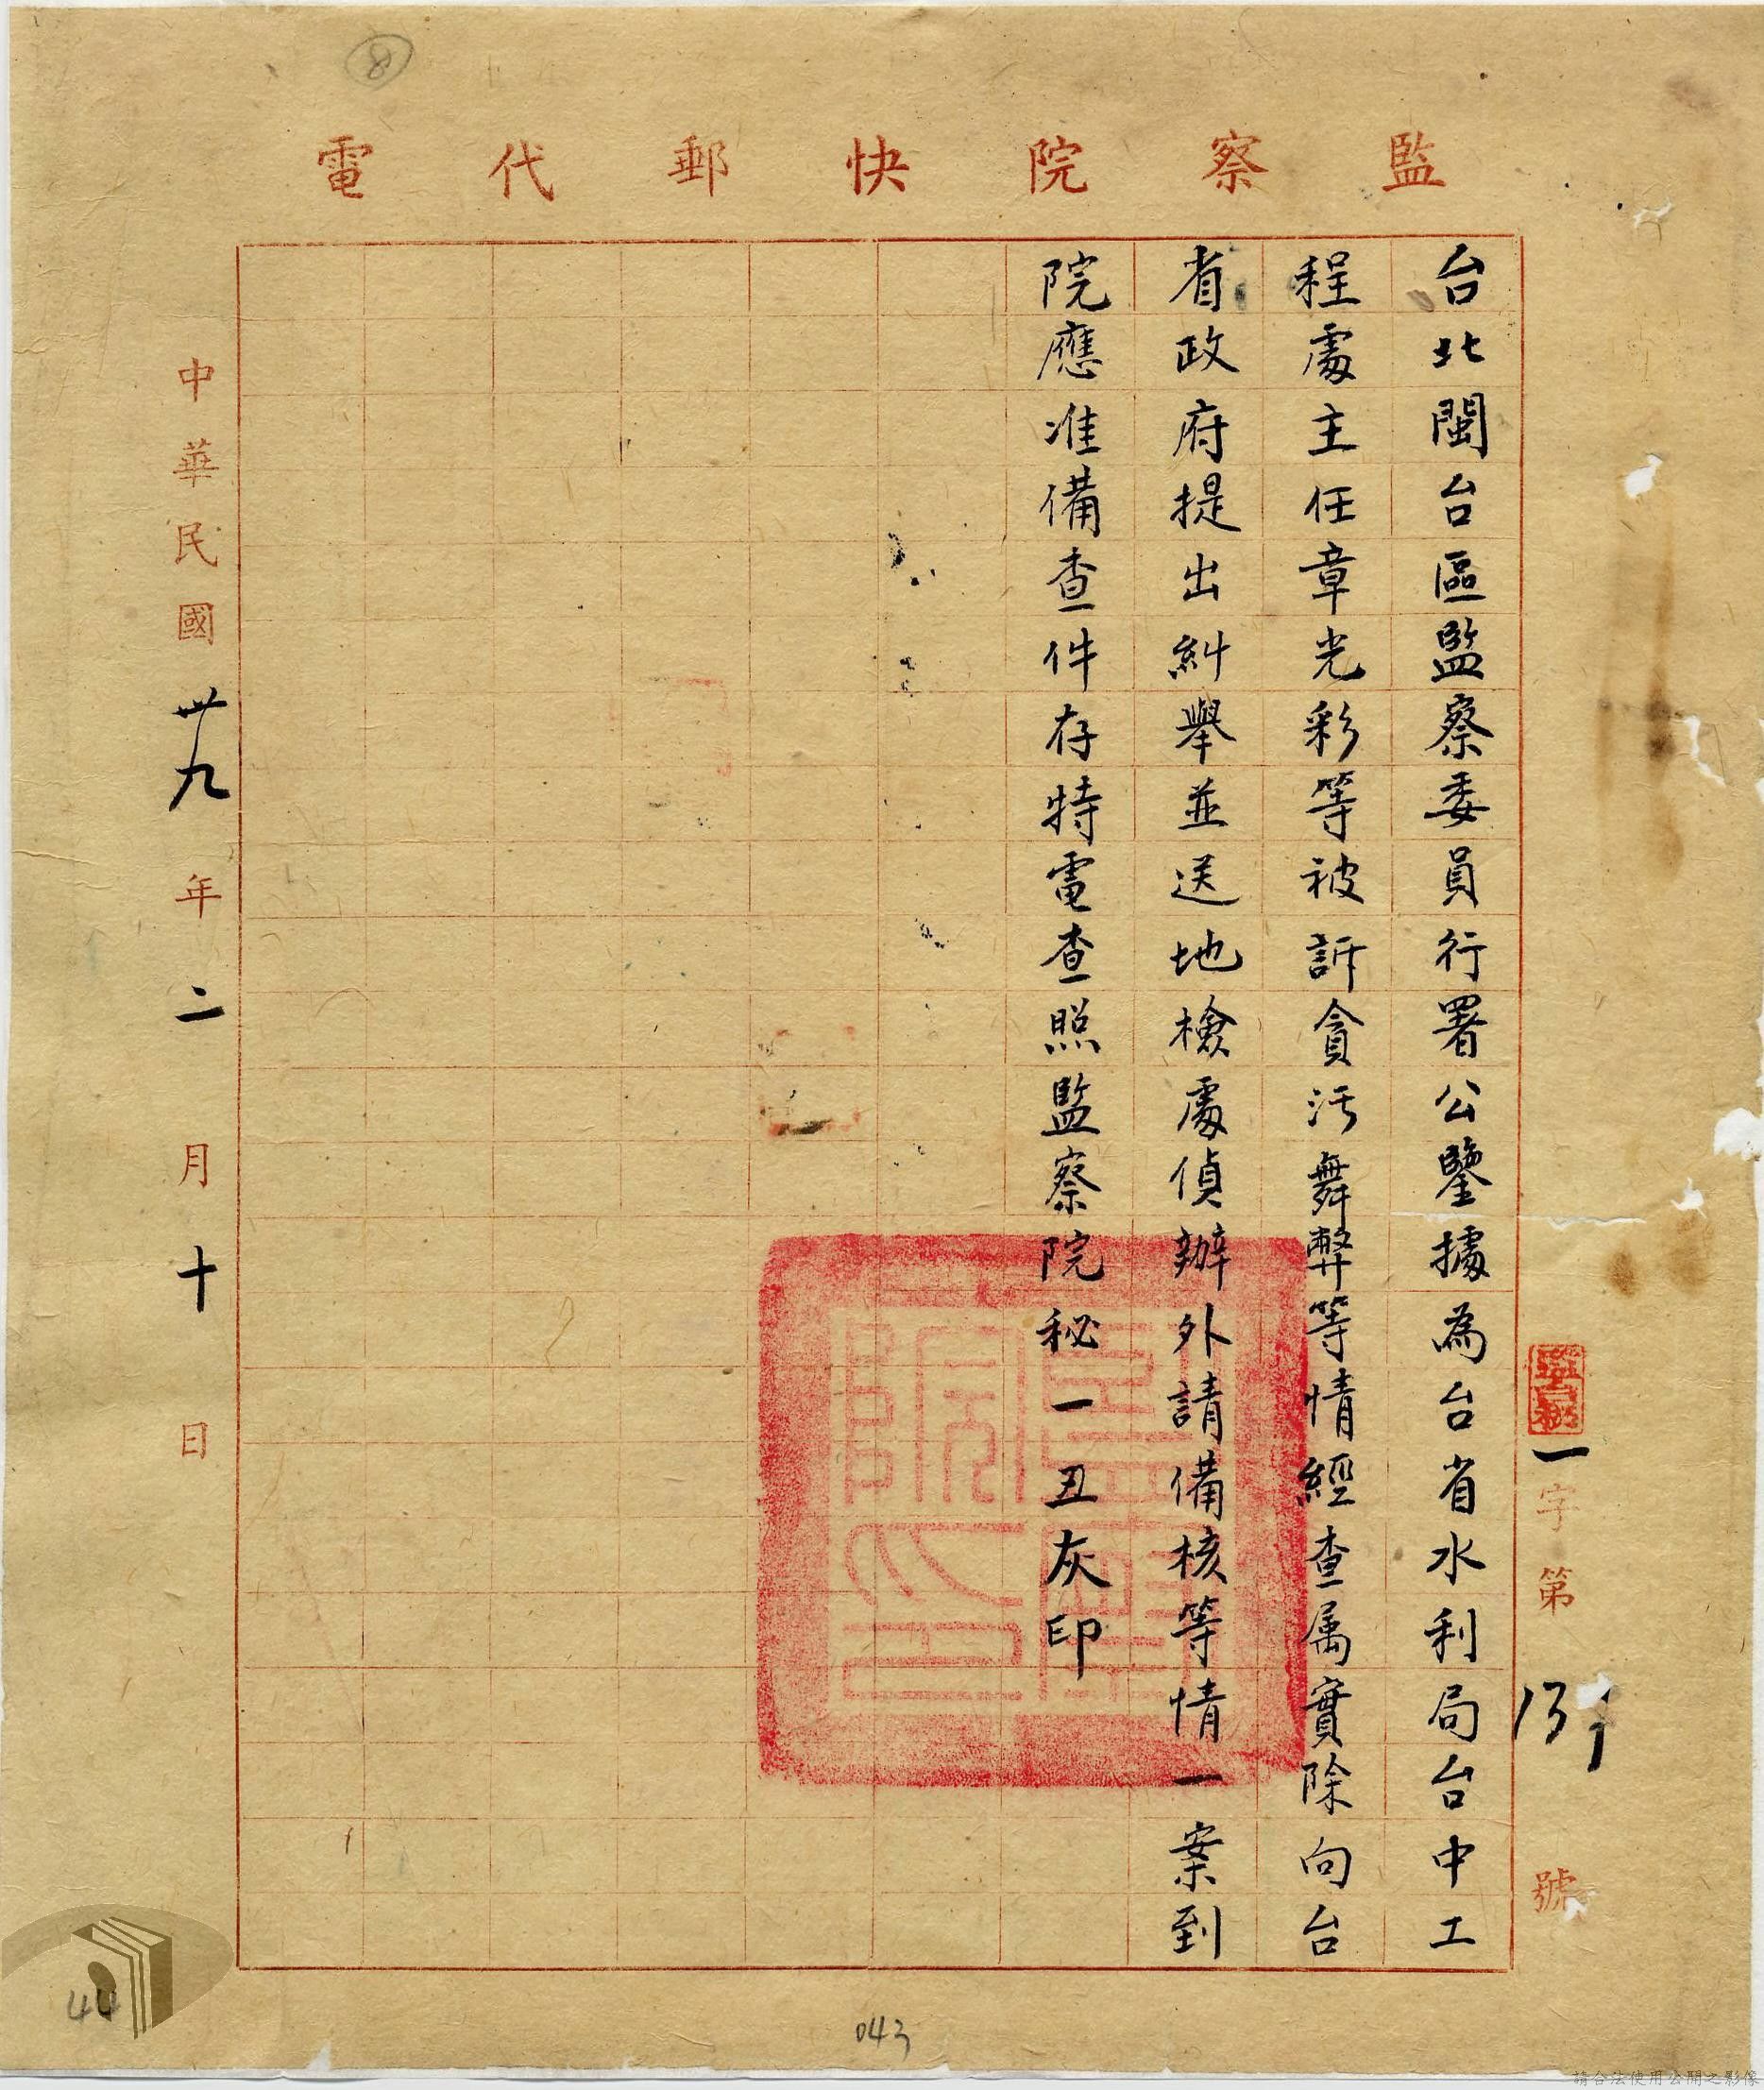 ⑧
監察院快郵代電
一字第139號
台北閩台區監察委員行署公鑒據為台省水利局台中工
程處主任章光彩等被訴貪污舞弊等情經查属實除向台
省政府提出糾舉並送地檢處偵辦外請備核等情一案到
院應准備查件存特電查照監察院秘一丑灰印
中華民國卅九年二月十日
監察院印
44
043
請合法使用公開之影像